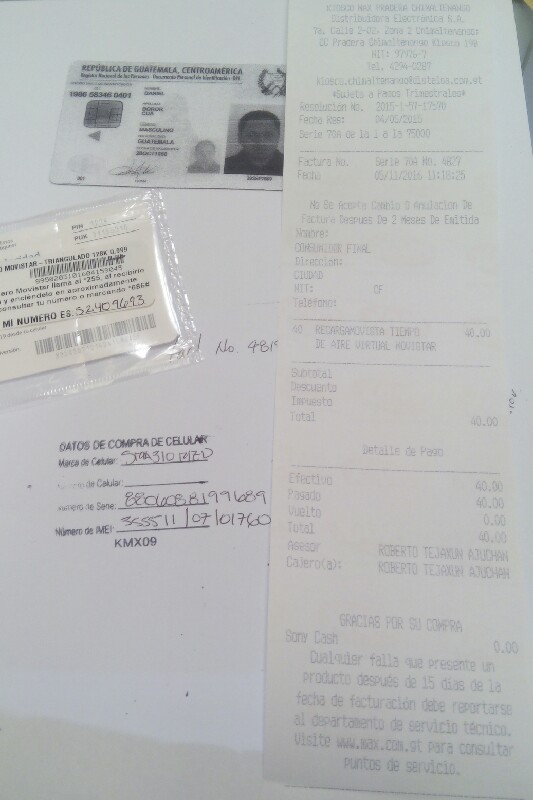 REPÚBLICA DE GUATEMALA, CENTROAMÉRICA
Registro Nacional de las Personas - Documento Personal de Identificación - DPI
NOMBRE
DANIEL
MASCULINO
NACIONALIDAD
GUATEMALA
PIN
PUK
MOVISTAR - TRIANGULADO 128K
ero Movistar llama al *255, el recibirlo
y enciéndelo en aproximadamente
consultar tu número o marcando *686#
MI NUMERO ES:
No.
DATOS DE COMPRA DE CELULAR
Marca de Celular:
de Celular:
Número de Serie: 8806088199689
Número de IMEI: 355511/07/01760
KMX09
KIOSCO MAX PRADERA CHIMALTENANGO
Distribuidora Electrónica S.A.
1a. Calle 2-02, Zona 2 Chimaltenango
CC Pradera Chimaltenango Kiosco
NIT:
Tel.
*Sujeto a Pagos Trimestrales*
Resolución No. 2015-1-57-17570
Fecha Res: 04/05/2015
Serie 70A de la 1 a la 95000
Factura No. Serie 70A No. 4827
Fecha 05/11/2016 11:18:25
No Se Acepta Cambio O Anulacion De
Factura Despues De 2 Meses De Emitida
Nombre:
CONSUMIDOR FINAL
Dirección:
CIUDAD
NIT: CF
Teléfono:
40 RECARGAMOVISTA TIEMPO 40.00
DE AIRE VIRTUAL MOVISTAR
Subtotal
Descuento
Impuesto
Total 40.00
Detalle de Pago
Efectivo 40.00
Pagado 40.00
Vuelto 0.00
Total 40.00
Asesor ROBERTO TEJAXUN AJUCHAN
Cajero(a): ROBERTO TEJAXUN AJUCHAN
GRACIAS POR SU COMPRA
Gony Cash 0.00
Cualquier falla que presente un
producto después de 15 días de la
fecha de facturación debe reportarse
al departamento de servicio técnico.
Visite www.max.com.gt para consultar
puntos de servicio.